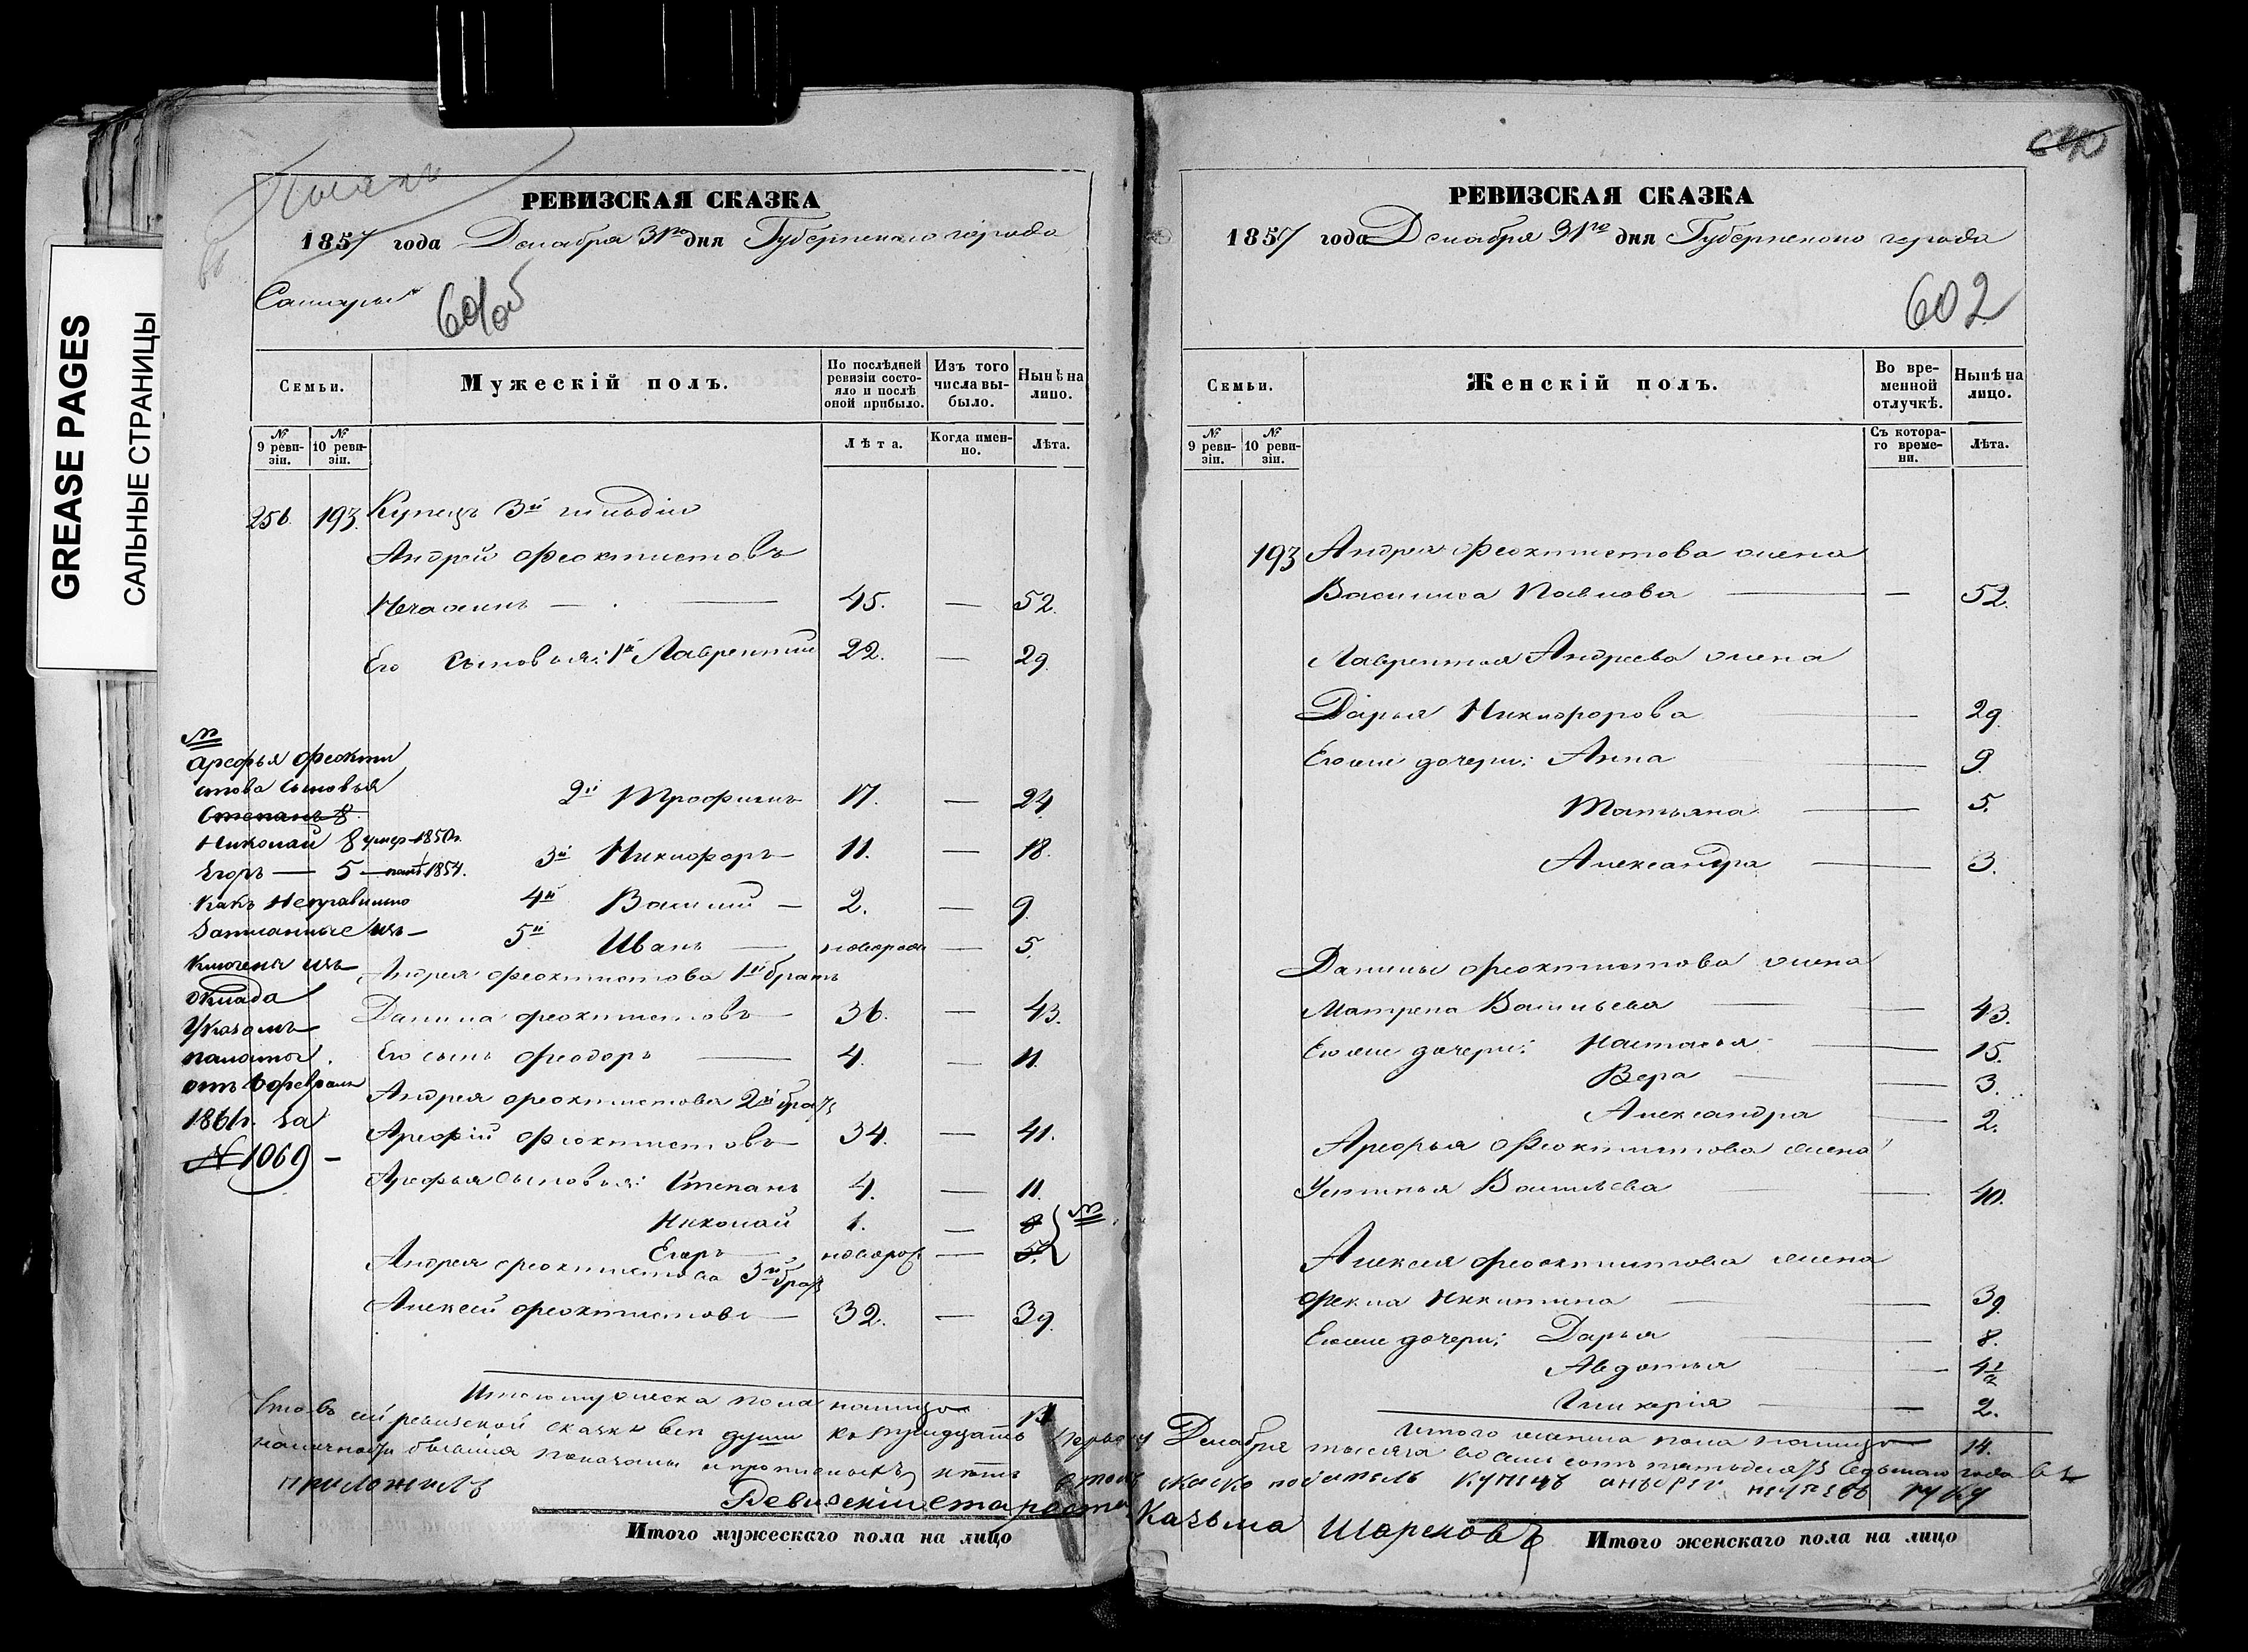 GREASE PAGES
САЛЬНЫЕ СТРАНИЦЫ
РЕВИЗСКАЯ СКАЗКА
1857 года Декабря 31го дня Губернскаго города
Самары
601об
Семьи.
Мужескій полъ.
По послѣдней ревизіи состояло и послѣ оной прибыло.
Изъ того числа выбыло.
Нынѣ на лицо.
№ 9 ревизіи.
№ 10 ревизіи.
Лѣта.
Когда именно.
Лѣта.
256. 193. Купецъ 3й гильдіи
Андрей Феоктистовъ
45. — 52.
Его сыновья: 1й Лаврентій 22. — 29.
2й Трофимъ 17. — 24.
3й Никифоръ 11. — 18.
4й Василій — 2. — 9.
5й Иванъ — новорож — 5.
Андрея Феоктистова 1й братъ
Данила Феоктистовъ — 36. — 43.
Его сынъ Феодоръ — 4. — 11.
Андрея Феоктистова 2й братъ
Арефій Феоктистовъ — 34. — 41.
Арефья сыновья: Степанъ 4. — 11.
Николай 1. — 8
Егоръ — новорож — 5.
Андрея Феоктистова 3й братъ
Алексей Феоктистовъ — 32. — 39.
Итого мужеска пола налицо
№
Арефья Феокти
стова сыновья
Степанъ 8
Николай 8 умер 1850г.
Егоръ — 5 — 1854.
какъ неправильно
записанные ис—
ключены изъ
оклада
Указомъ
палаты
отъ 6 февраля
1861г. за
№ 1069 —
Что въ сей ревизской сказки все души къ тридцать первому Декабря тысяча восемь сотъ пятьдесятъ седьмаго года въ
наличности бывшія показаны и прописныхъ нѣтъ
приложилъ
Ревизскій староста Казьма Шареховъ
Итого мужескаго пола на лицо
РЕВИЗСКАЯ СКАЗКА
1857 года Декабря 31го дня Губернскаго города
602
Семьи.
Женскій полъ.
Во временной отлучкѣ.
Нынѣ на лицо.
№ 9 ревизіи.
№ 10 ревизіи.
Съ котораго времени.
Лѣта.
193 Андрея Феоктистова жена
Василиса Павлова — 52.
Лаврентья Андреева жена
Дарья Никифорова — 29.
Его же дочери: Анна — 9.
Татьяна — 5.
Александра — 3.
Данилы Феоктистова жена
Матрена Васильева — 43.
Его же дочери: Настасья — 15.
Вера — 3.
Александра — 2.
Арефья Феоктистова жена
Устинья Васильева — 40.
Алексея Феоктистова жена
Фекла Никитина — 39.
Его же дочери: Дарья — 8.
Авдотья — 4½
Гликерія — 2.
Итого женска пола налицо — 14.
Итого женскаго пола на лицо